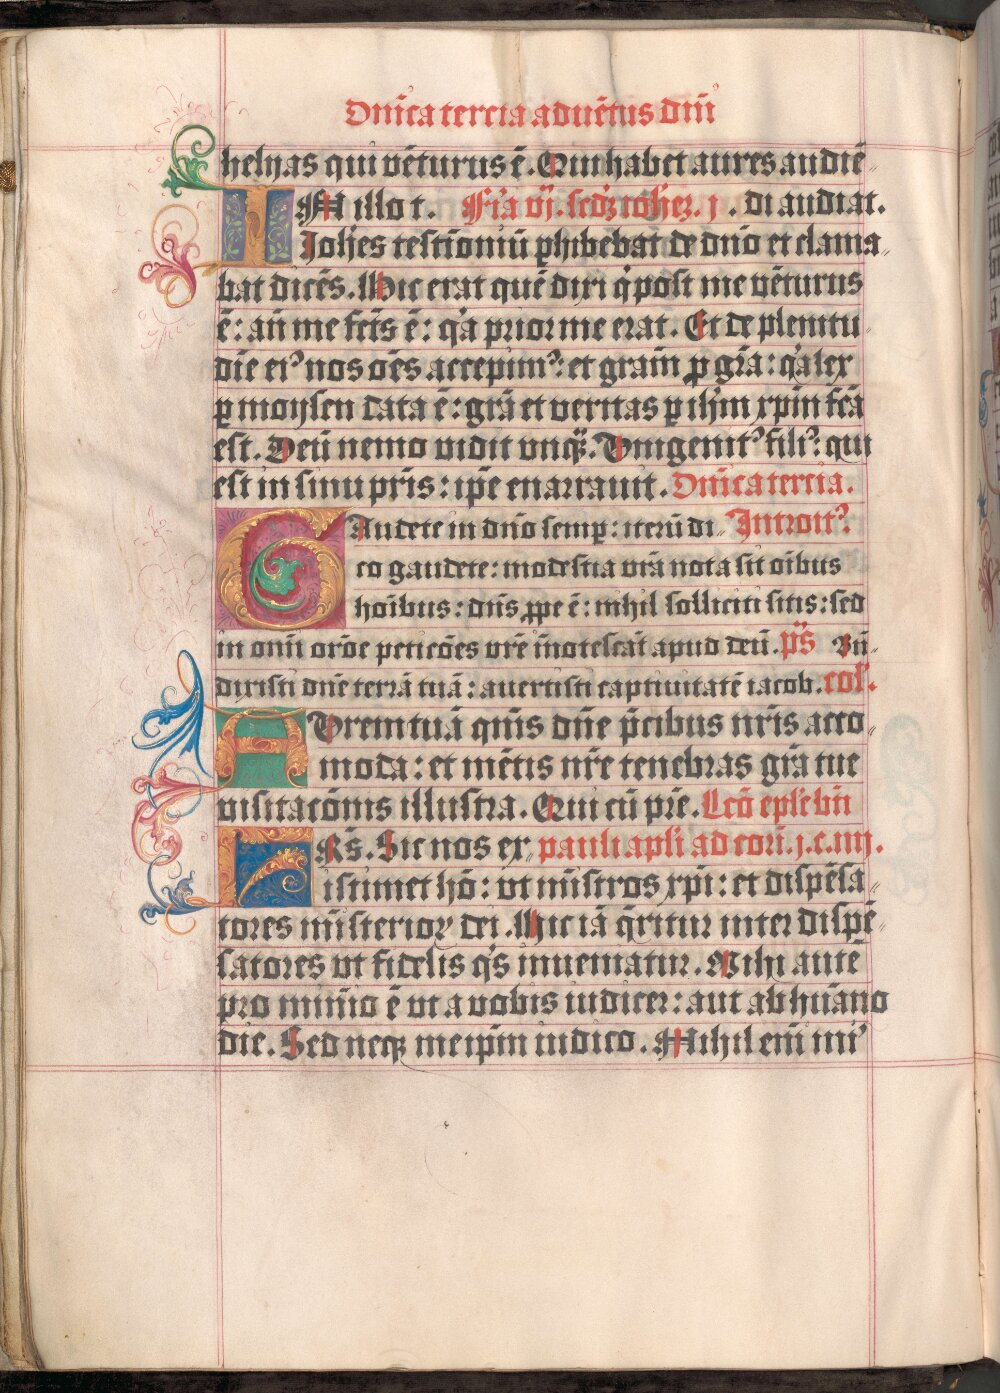 Dn̄ica tercia aduētus dn̄i
helyas qui vēturus ē. Qui habet aures audiē
IN illo t. Fr̄a vj. scd̄ꝫ ioheꝫ. j. di audiat.
Joh̄es testīoniū ꝑhibebat de dn̄o et clama
bat dicēs. Hic erat quē dixi q̇ post me vēturus
ē: an̄ me fc̄ts ē: q̇a prior me erat. Et de plenitu
dīe eiꝰ nos om̄s accepimꝰ: et gram̄ ꝓ gr̄a: q̇a lex
ꝑ moysen data ē: gr̄a et veritas ꝑ ih̄m xp̄m fc̄a
est. Deū nemo vidit vnqȝ. Vnigenitꝰ filiꝰ: qui
est in sinu pr̄is: ip̄e enarrauit. Dn̄ica tercia.
GAudete in dn̄o semp: iterū di Introitꝰ
co gaudete: modestia vr̄a nota sit oībus
hoībus: dn̄s ꝓpe ē: nihil solliciti sitis: sed
in omī oróe peticōes vr̄e īnotescāt apud deū. ps̄ Bn̄
dixisti dn̄e terrā tuā: auertisti captiuitatē iacob. col̄.
AVrem tuā qm̄s dn̄e p̄cibus nr̄is acco
moda: et mētis nr̄e tenebras gr̄a tue
visitacōnis illustra. Qui cū pr̄e. Lc̄ō epl̄e bt̄i
FRs̄. Sic nos ex pauli apl̄i ad cori. j. c. iiij.
istimet hō: vt mīstros xp̄i: et dispēsa
tores mīsterioꝝ dei. Hic iā q̄ritur inter dispē
satores vt fidelis q̇s inueniatur. Mihi autē
pro minīo ē vt a vobis iudicer: aut ab hūano
die. Sed neqȝ meip̄m iudico. Nihil enī mi